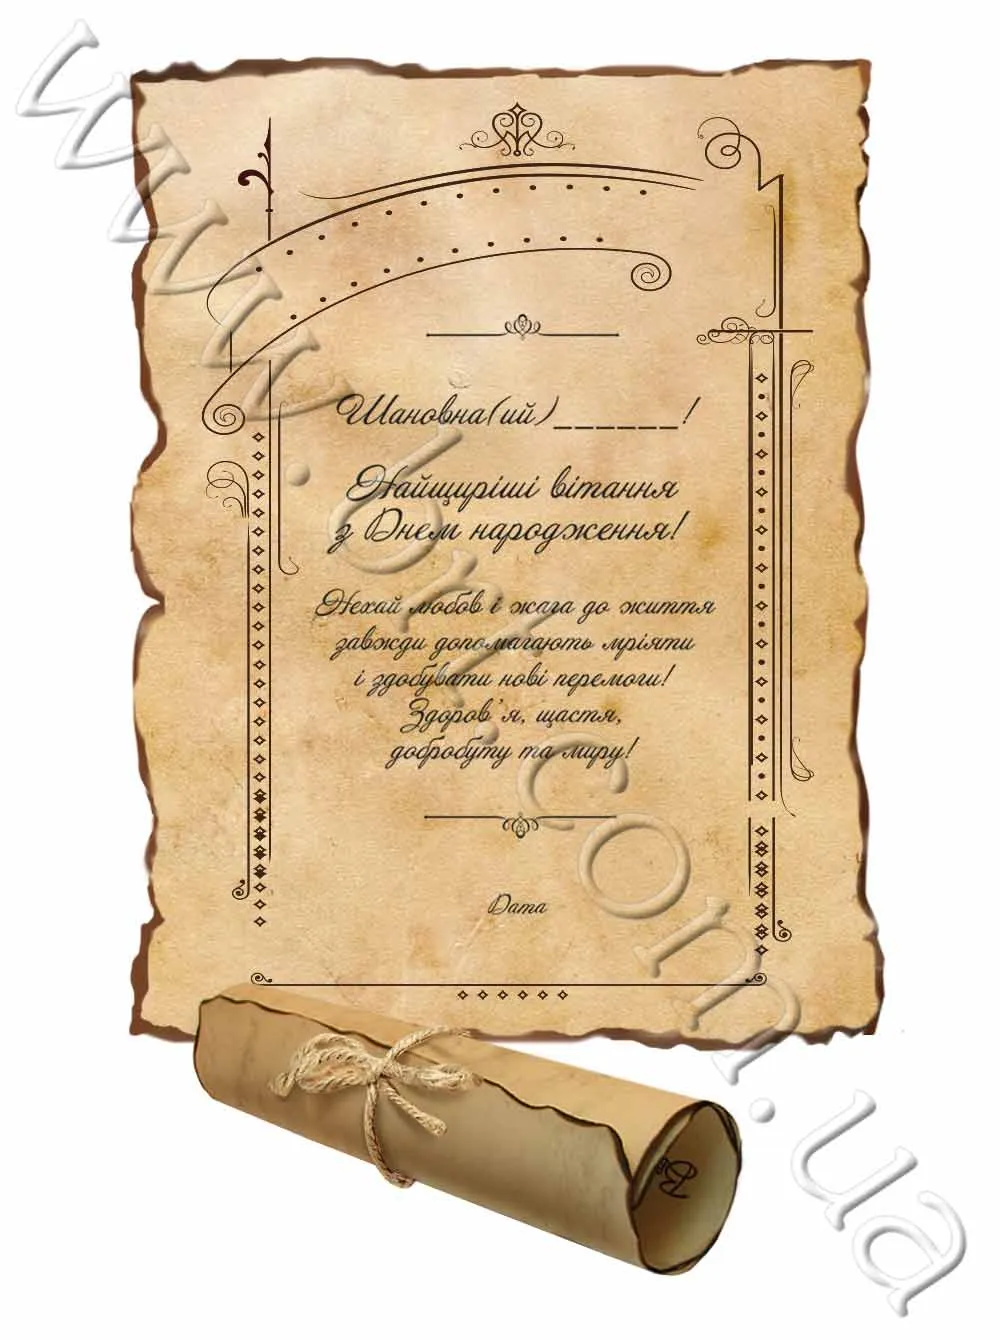 Шановна(ий)______!
Найщиріші вітання
з Днем народження!
Нехай любов і жага до життя
завжди допомагають мріяти
і здобувати нові перемоги!
Здоров'я, щастя,
добробуту та миру!
Дата